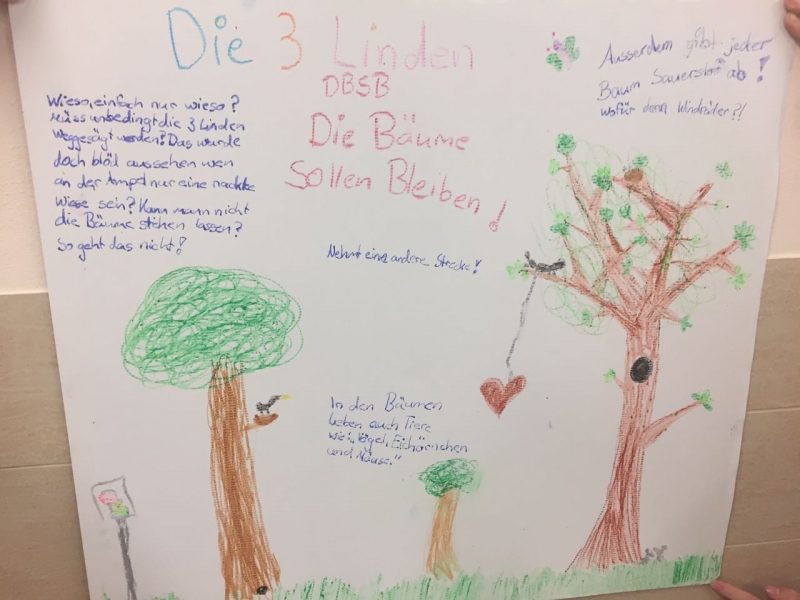 Die 3 Linden
DBSB
Die Bäume
Sollen Bleiben!
Wieso, einfach nur wieso?
Müss unbedingt die 3 Linden
Weggesägt werden? Das wurde
doch blöd aussehen wen
an der Ampel nur eine nackte
Wiese sein? Kann mann nicht
die Bäume stehen lassen?
So geht das nicht!
Ausserdem gibt jeder
Baum Sauerstoff ab!
wofür dann Windräder?!
Nehmt eine andere Strecke!
In den Bäumen
leben auch Tiere
wie: Vögel, Eichörnchen
und Mäuse."